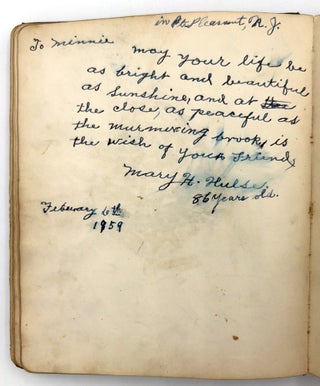 in Pt. Pleasant, N. J.
To Minnie
May your life be
as bright and beautiful
as sunshine, and at
the close, as peaceful as
the murmuring brook, is
the wish of your Friend,
Mary H. Hulse
86 years old.
February 6th
1959